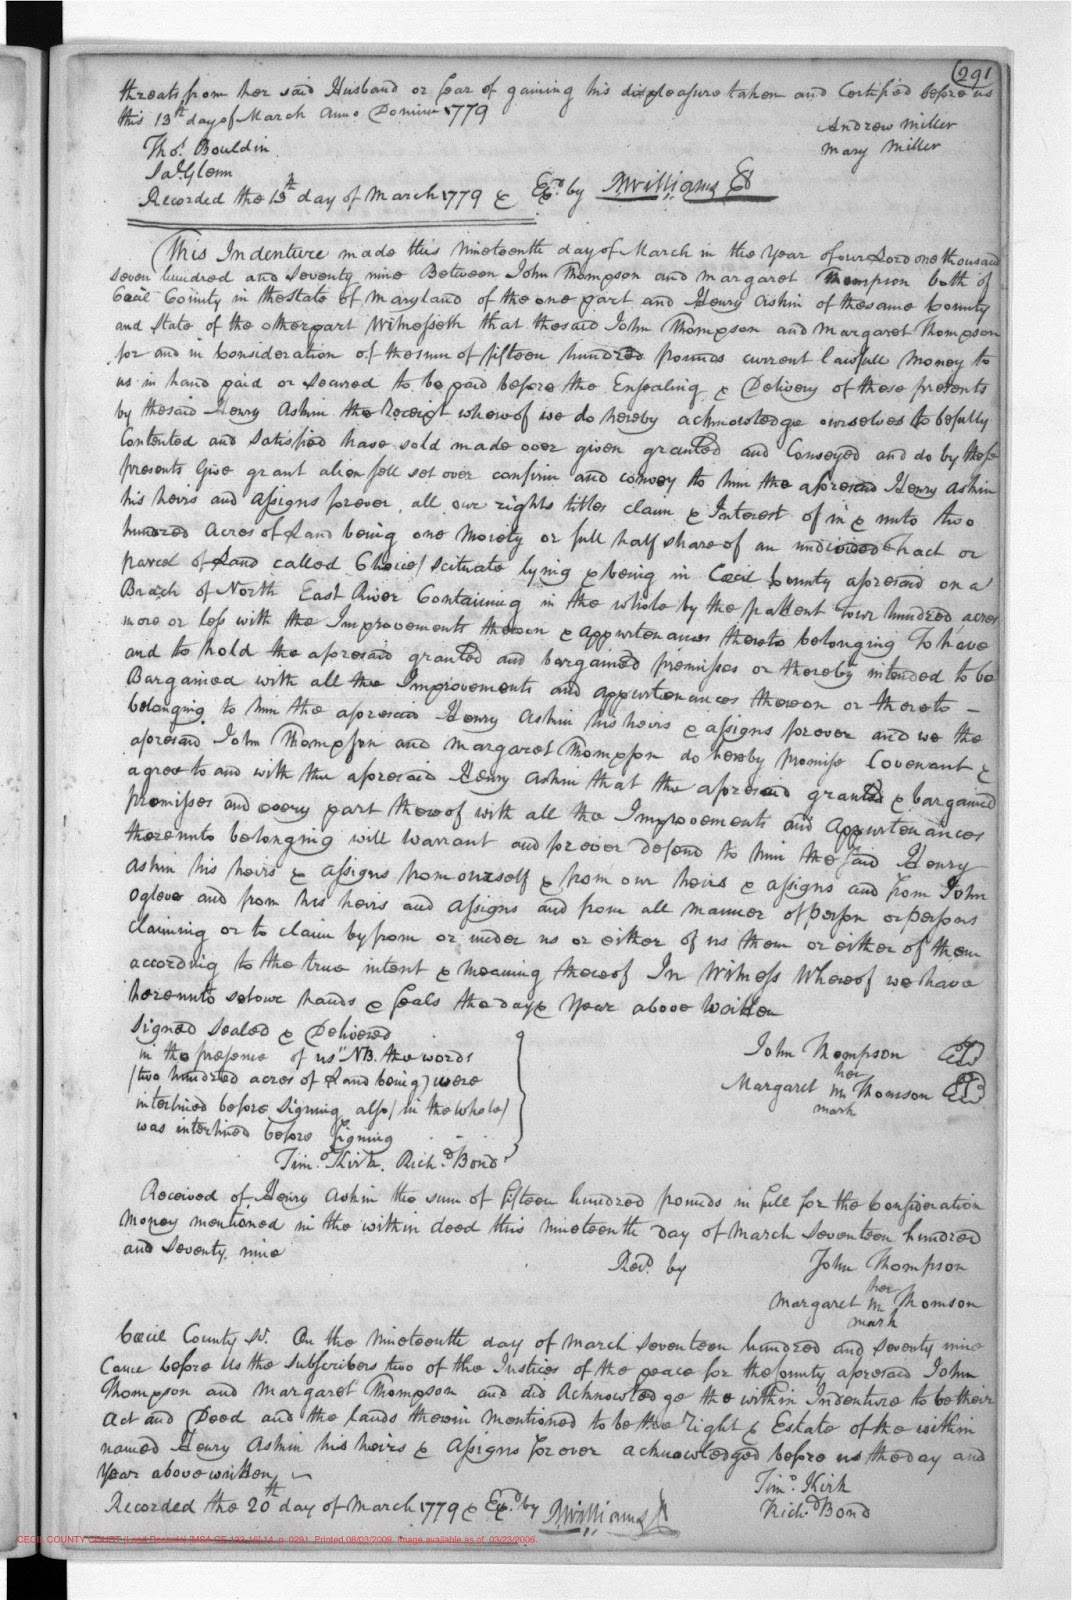 291
threats from her said Husband or fear of gaining his displeasure taken and Certified before us
this 13th day of March Anno Domini 1779
Andrew Miller
Mary Miller
Thos. Bouldin
Jas. Glenn
Recorded the 13th day of March 1779 & Exd. by MWilliams
This Indenture made this Nineteenth day of March in the Year of our Lord one thousand
seven hundred and seventy nine Between John Thompson and Margaret Thompson both of
Cecil County in the state of Maryland of the one part and Henry Ashin of the same County
and State of the other part Witnesseth that the said John Thompson and Margaret Thompson
for and in Consideration of the sum of fifteen hundred pounds current lawfull Money to
us in hand paid or secured to be paid before the Ensealing & Delivery of these presents
by the said Henry Ashin the Receipt whereof we do hereby acknowledge ourselves to be fully
Contented and Satisfied have sold made over given granted and Conveyed and do by these
presents Give grant alien sell set over confirm and convey to him the aforesaid Henry Ashin
his heirs and Assigns forever, all our rights titles claim & Interest of in & unto two
hundred Acres of Land being one Moiety or full half share of an undivided Tract or
parcel of Land called Choice/ scituate lying & being in Cecil County aforesaid on a
Branch of North East River Containing in the whole by the pattent four hundred acres
more or less with the Improvements thereon & appurtenances thereto belonging To have
and to hold the aforesaid granted and bargained premisses or thereby intended to be
Bargained with all the Improvements and appurtenances thereon or thereto -
belonging to him the aforesaid Henry Ashin his heirs & assigns forever and we the
aforesaid John Thompson and Margaret Thompson do hereby promise Covenant &
agree to and with the aforesaid Henry Ashin that the aforesaid granted & bargained
premisses and every part thereof with all the Improvements and Appurtenances
thereunto belonging will Warrant and forever defend to him the said Henry
Ashin his heirs & assigns from ourself & from our heirs & assigns and from John
Ogleve and from his heirs and assigns and from all manner of person or persons
claiming or to claim by from or under us or either of us them or either of them
according to the true intent & meaning thereof In Witness Whereof we have
hereunto set our hands & seals the day & Year above Written
Signed Sealed & Delivered
in the presence of us NB. the words
(two hundred acres of Land being) were
interlined before signing also (in the whole)
was interlined before signing
Timo. Kirk. Richd. Bond
John Thompson
her
Margaret M Thomson
mark
Received of Henry Ashin the sum of fifteen hundred pounds in full for the Consideration
Money mentioned in the within deed this nineteenth day of March Seventeen hundred
and Seventy nine
Recd. by
John Thompson
her
Margaret M Thomson
mark
Cecil County Sc. On the Nineteenth day of March seventeen hundred and seventy nine
Came before Us the subscribers two of the Justices of the peace for the County aforesaid John
Thompson and Margaret Thompson and did Acknowledge the within Indenture to be their
Act and Deed and the lands therein mentioned to be the Right & Estate of the within
named Henry Ashin his heirs & Assigns forever acknowledged before us the day and
Year above written
Timo. Kirk
Richd. Bond
Recorded the 20th day of March 1779 & Exd. by MWilliams
CECIL COUNTY COURT (Land Records) [MSA CE 133-16] 14, p. 0291. Printed 08/03/2009. Image available as of 03/23/2006.